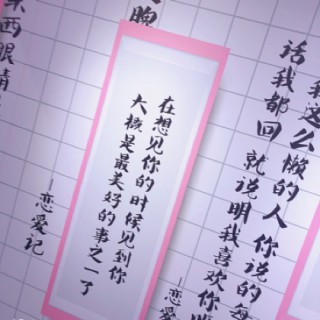 我这么懒的人 你说的每
话我都回 就说明我喜欢你
—恋爱
在想见你的时候见到你
大概是最美好的事之一了
—恋爱记
西眼睛